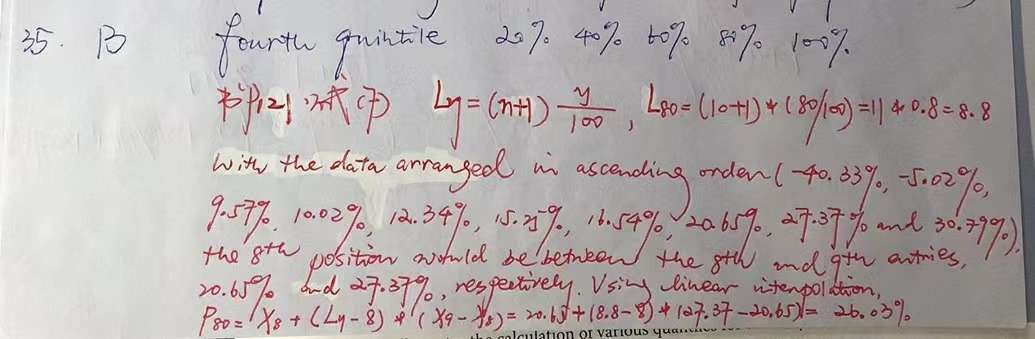 35. B fourth quintile 20% 40% 60% 80% 100%
书P121 公式(7) Ly = (n+1) y/100, L80 = (10+1)*(80/100)=11*0.8=8.8
With the data arranged in ascending order (-40.33%, -5.02%,
9.57%, 10.02%, 12.34%, 15.25%, 16.54%, 20.65%, 27.37% and 30.79%),
the 8th position would be between the 8th and 9th entries,
20.65% and 27.37%, respectively. Using linear interpolation,
P80 = X8 + (Ly-8) * (X9-X8) = 20.65+(8.8-8)*(27.37-20.65)= 26.03%
the calculation of various